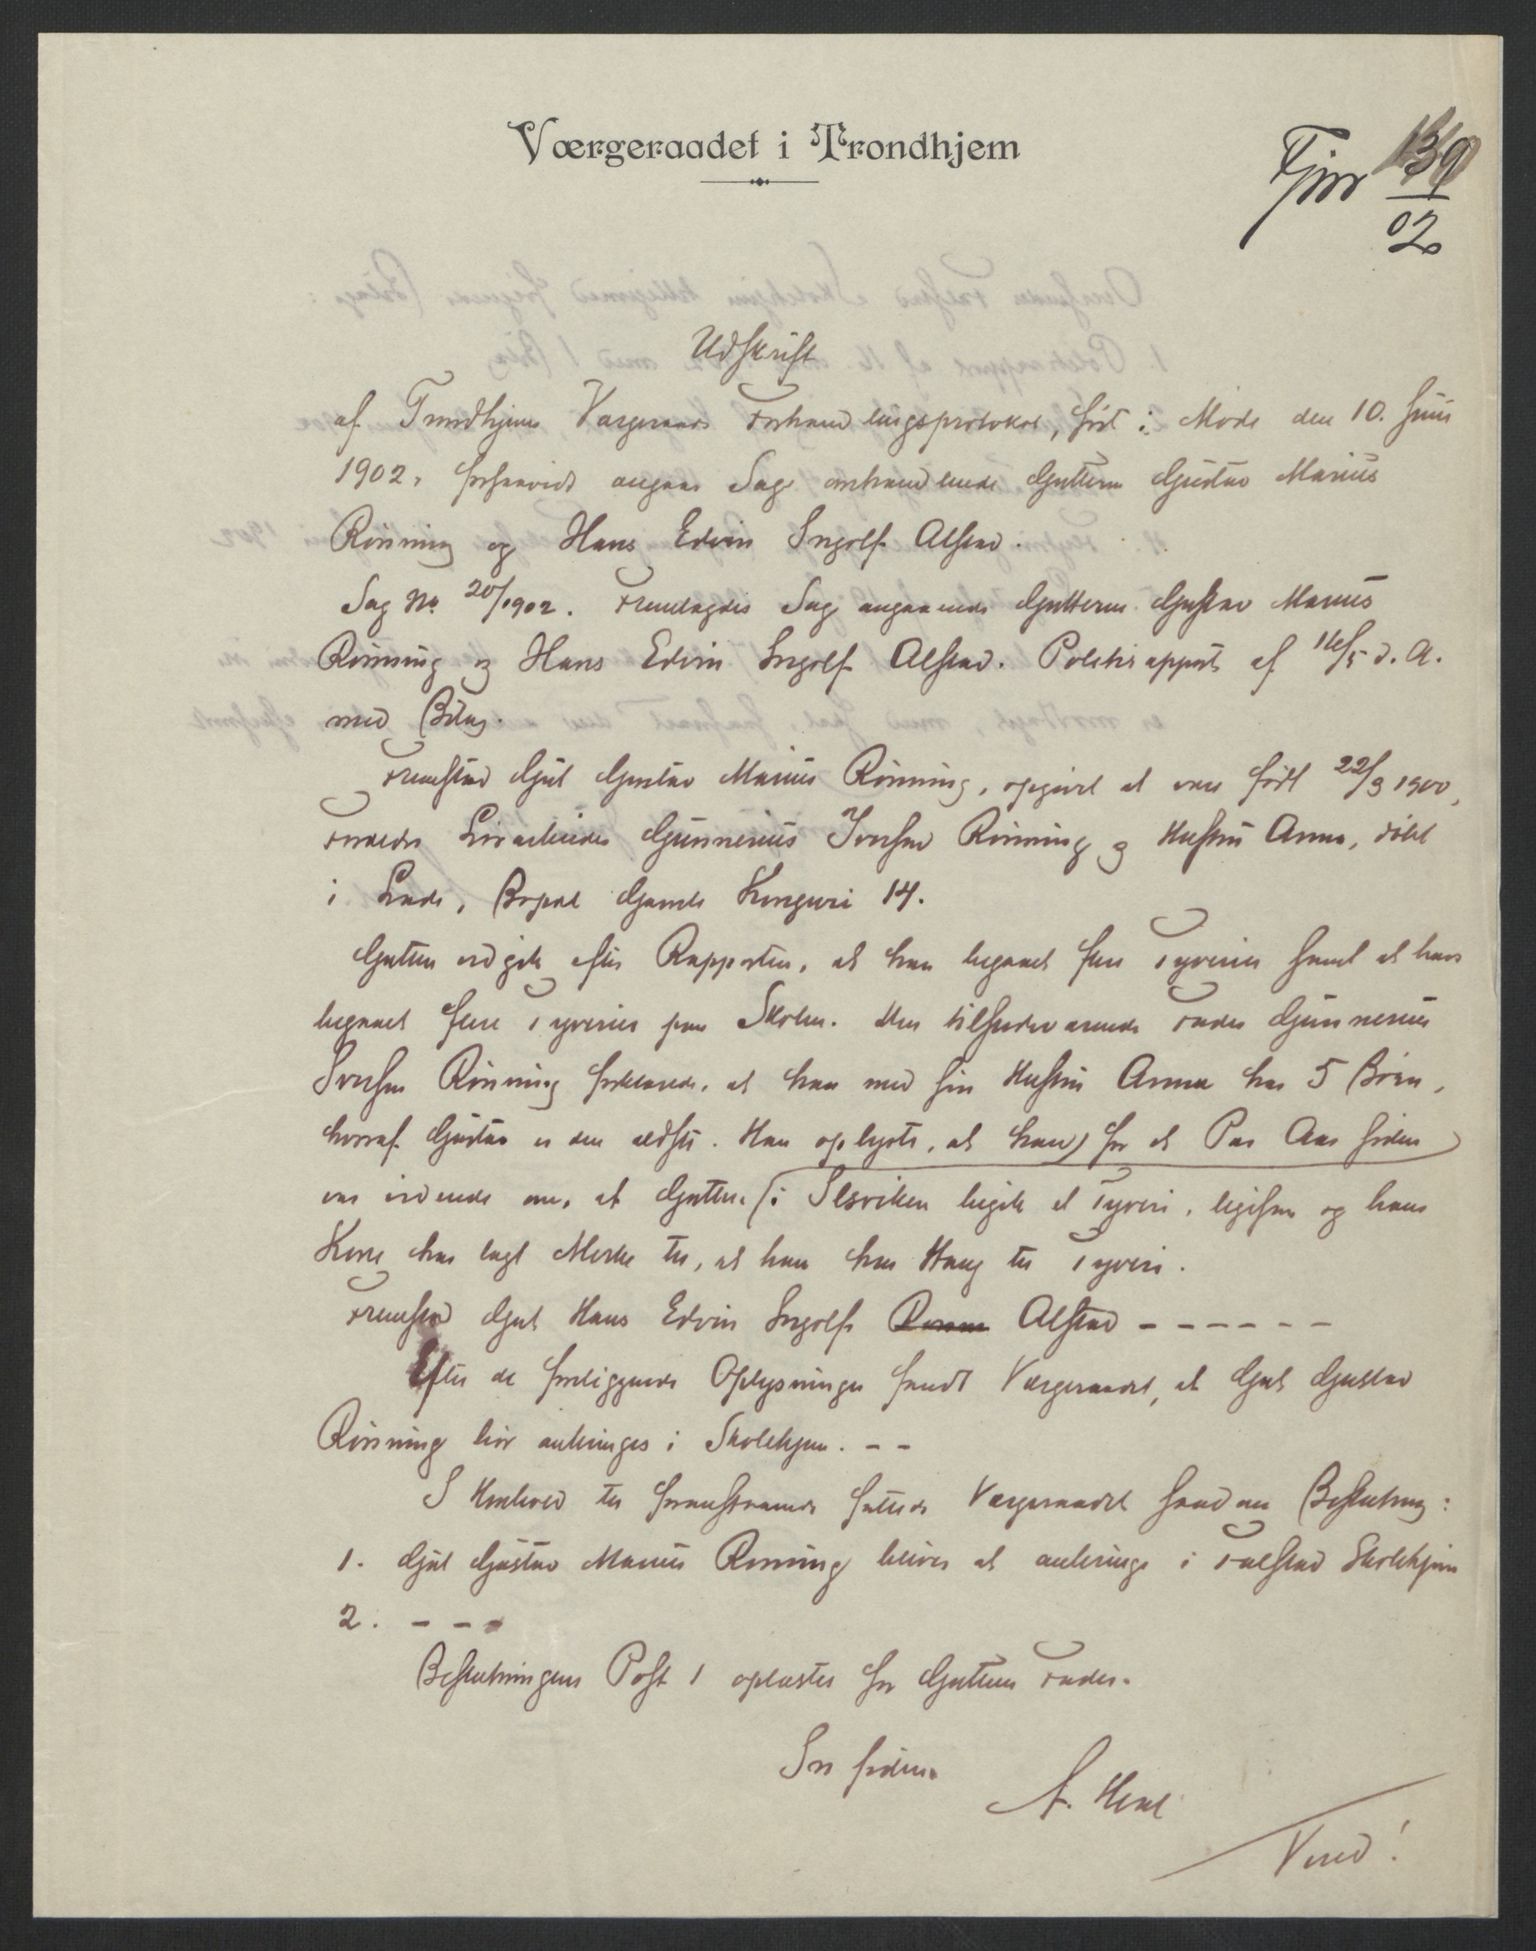 Værgeraadet i Trondhjem
Fjnr 139
02
Udskrift
af Trondhjems Værgeraads Forhandlingsprotokol, ført i Møde den 10. Juni
1902, forsaavidt angaar Sag omhandlende Gutterne Gustav Marius
Rønning og Hans Edvin Ingolf Alstad.
Sag No 20/1902. Fremlagdes Sag angaaende Gutterne Gustav Marius
Rønning og Hans Edvin Ingolf Alstad. Politirapport af 16/5 d. A.
med Bilag.
Fremstod Gut Gustav Marius Rønning, opgivet at være født 22/3 1900,
Forældre Gunnerius Iversen Rønning og Hustru Anna, døbt
i Lade, Bopæl Gamle Kongevei 14.
Gutten vedgik efter Rapporten, at han begaaet flere Tyverier samt at have
begaaet flere Tyverier paa Skolen. Den tilstedeværende Fader Gunnerius
Iversen Rønning forklarede, at han med sin Hustru Anna har 5 Børn,
hvoraf Gustav er den ældste. Han oplyste, at han) for et Par Aar siden
var vidende om, at Gutten (i Ilsviken begik et Tyveri, ligesom og hans
Kone har lagt Merke til, at han har Hang til Tyveri.
Fremstod Gut Hans Edvin Ingolf Alstad - - - - - -
Efter de foreliggende Oplysninger fandt Værgeraadet, at Gut Gustav
Rønning bør anbringes i Skolehjem. - -
I Henhold til foranstaaende fattede Værgeraadet saadan Beslutning:
1. Gut Gustav Marius Rønning bliver at anbringe i Falstad Skolehjem
2. - - -
Beslutningens Post 1 oplæstes for Guttens Fader.
In fidem
Vend!